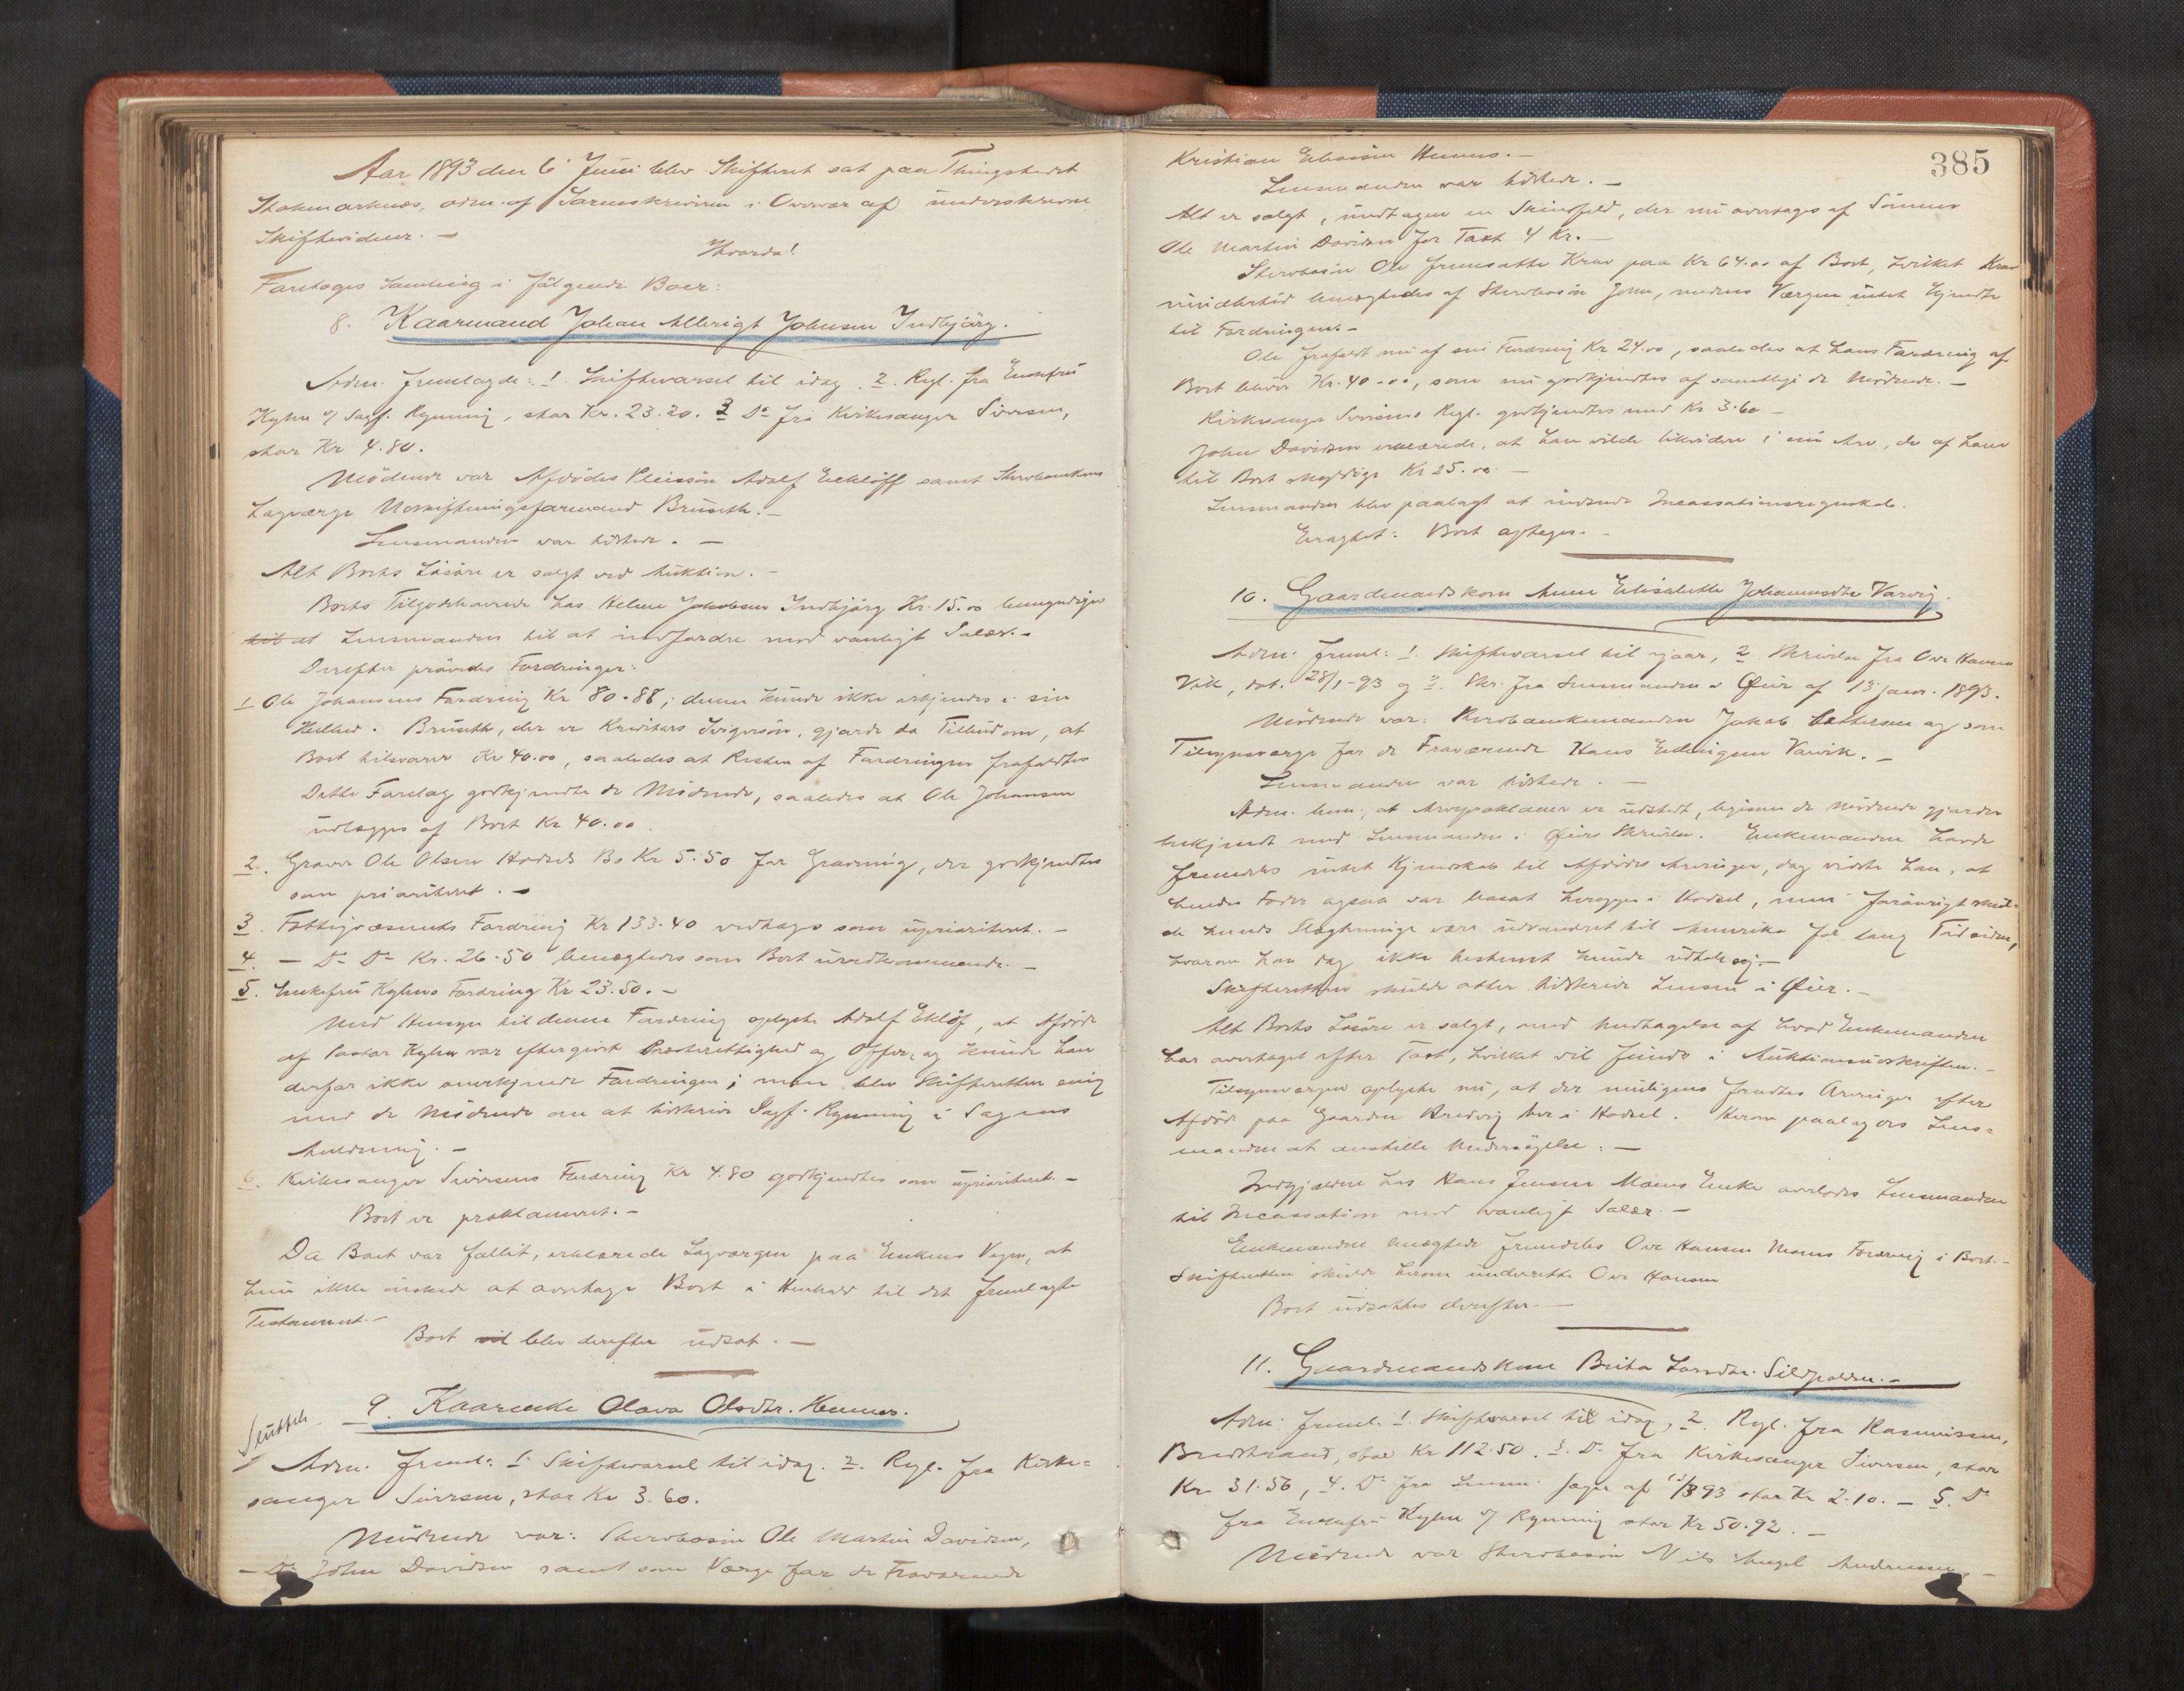 Aar 1893 den 6 Juni blev Skifteret sat paa Thingstedet
Stokmarknæs, adm. af Sorenskriveren i Overvær af underskrevne
Skiftevidner. —
Hvorda!
Foretoges Samling i følgende Boer:
8. Kaarmand Johan Albrigt Johnsen Indbjörg.
Adm. fremlagde: 1. Skiftevarsel til idag. 2. Regl. fra Enkefru
Kyhn v/ Sagf. Rynning, stor Kr. 23.20. 3 Do fra Kirkesanger Siversen,
stor Kr 4.80.
Mödende var Afdödes Pleiesön Adolf Eeklöff samt Stervboenkens
Lagværge Udskiftningsformand Bruseth. —
Lensmanden var tilstede. —
Alt Boets Lösöre er solgt ved Auktion. —
Boets Tilgodehavende hos Helene Jakobsen Indbjörg Kr. 15.00 bemyndiges
til at Lensmanden til at indfordre mod vanligt Salær. —
Derefter prövedes Fordringer:
1 Ole Johansens Fordring Kr 80.88; denne kunde ikke erkjendes i sin
Helhed. Bruseth, der er Kreditors Svigersön, gjorde da Tilbud om, at
Boet tilsvarer Kr 40.00, saaledes at Resten af Fordringen frafaldtes
Dette Forslag godkjendte de Mödende, saaledes at Ole Johansen
udlægges af Boet Kr 40.00.
2. Graver Ole Olsen Hadsels Bo Kr 5.50 for Gravning, der godkjendtes
som prioriteret. —
3. Fattigvæsenets Fordring Kr 133.40 vedtoges som uprioriteret. —
4. — Do Do Kr. 26.50 benægtedes som Boet uvedkommende. —
5. Enkefru Kyhns Fordring Kr 23.50. —
Med Hensyn til denne Fordring oplyste Adolf Eklöf, at Afdöde
af Pastor Kyhn var eftergivet Presterettighed og Offer, og kunde han
derfor ikke anerkjende Fordringen; men blev Skifteretten enig
med de Mödende om at tilskrive Sagf. Rynning i Sagens
Anledning. —
6. Kirkesanger Siversens Fordring Kr 4.80 godkjendtes som uprioriteret. —
Boet er proklameret. —
Da Boet var fallit, erklærede Lagværgen paa Enkens Vegne, at
hun ikke önsked at overtage Boet i Henhold til det fremlagte
Testament. —
Boet vil blev derefter udsat. —
Sluttet.
9. Kaarenke Olava Olsdtr. Hennes.
Adm. freml: 1. Skiftevarsel til idag. 2. Regl. fra Kirke=
sanger Siversen, stor Kr 3.60.
Mödende var: Stervbosön Ole Martin Davidsen,
— Do John Davidsen samt som Værge for de Fraværende
385
Kristian Hennes. —
Lensmanden var tilstede. —
Alt er solgt, undtagen en Skindfeld, der nu overtages af Sönnen
Ole Martin Davidsen for Taxt 4 Kr. —
Stervbosön Ole fremsatte Krav paa Kr 64.00 af Boet, hvilket Krav
imidlertid benægtedes af Stervbosön John, medens Værgen intet kjendte
til Fordringen. —
Ole frafaldt nu af sin Fordring Kr 24.00, saaledes at hans Fordring af
Boet bliver Kr. 40.00, som nu godkjendtes af samtlige de Mödende. —
Kirkesanger Sivesens Regl. godkjendtes med Kr 3.60 —
John Davidsen erklærede, at han vilde likvidere i sin Arv, de af ham
til Boet skyldige Kr 25.00. —
Lensmanden blev paalagt at indsende Incassationsregnskab.
Eragtet: Boet optages. —
10. Gaardmandskone Anne Elisabethe Johannesdtr Varvig.
Adm. freml: 1. Skiftevarsel til ijaar, 2 Skrivelse fra Ove Hansen
Vik, dat. 28/1-93 og 3. Skr. fra Lensmanden i Öier af 13 janr. 1893.
Mödende var: Stervboenkemanden Jakob Pettersen og som
Tilsynsværge for de Fraværende Hans Edvingsen Varvik. —
Lensmanden var tilstede. —
Adm. bem., at Arveproklama er udstedt, ligesom de Mödende gjordes
bekjendt med Lensmanden i Öiers Skrivelse. Enkemanden havde
fremdeles intet Kjendskab til Afdödes Arvinger, dog vidste han, at
hendes Fader ogsaa var bosat heroppe i Hadsel, men forövrigt skul=
de hendes Slægtninge være udvandret til Amerika for lang Tid siden,
hvorom han dog ikke bestemt kunde udtale sig. —
Skifteretten skulde atter tilskrive Lensm. i Öier. —
Alt Boets Lösöre er solgt, med Undtagelse af hvad Enkemanden
har overtaget efter Taxt, hvilket vil findes i Auktionsudskriften. —
Tilsynsværgen oplyste nu, at der muligens fandtes Arvinger efter
Afdöde paa Gaarden Bredvig her i Hadsel. Herom paalagdes Lens=
manden at anstille Undersögelse. —
Indgjælden hos Hans Jensen Moens Enke overlodes Lensmanden
til Incassation mod vanligt Salær. —
Enkemanden benægtede fremdeles Ove Hansen Moens Fordring i Boet. —
Skifteretten skulde herom underrette Ove Hansen
Boet udsattes derefter. —
11. Gaardmandskone Berta Larsdtr. Sildpolden. —
Adm. freml. 1. Skiftevarsel til idag, 2. Regl. fra Rasmussen,
Bredstrand, stor Kr 112.50. 3. Do fra Kirkesanger Siversen, stor
Kr 31.56, 4. Do fra Lensm. Jæger af 13/3 93 stor Kr 2.10. — 5. Do
fra Enkefru Kyhn v/ Rynning stor Kr 50.92. —
Mödende var Stervbosön Nils Angel Andreassen, —